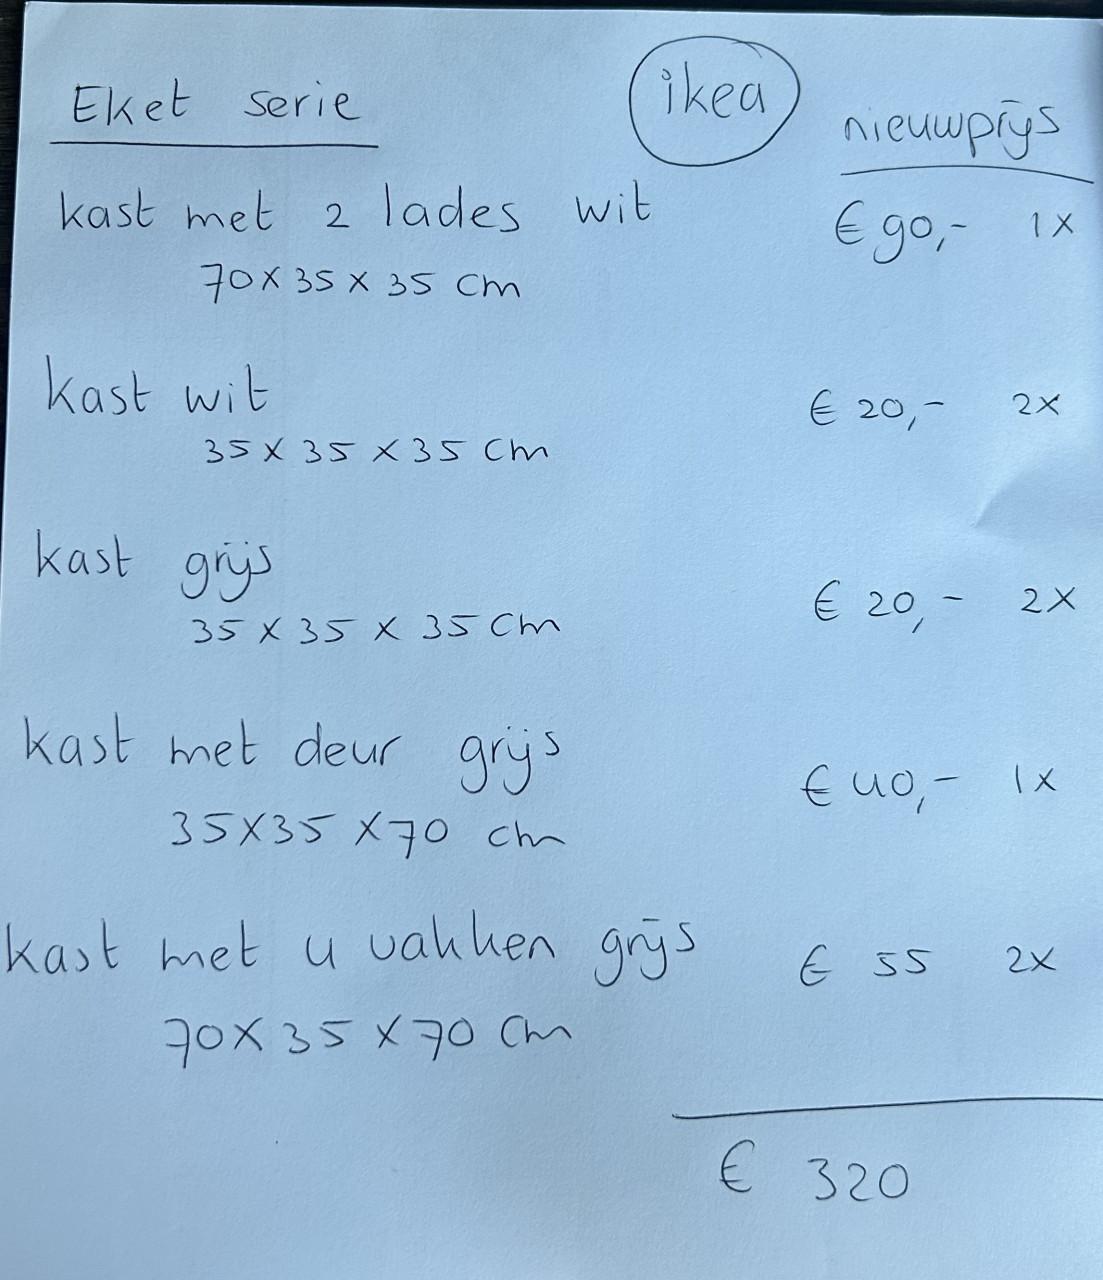 Eket serie
ikea
nieuwprijs
kast met 2 lades wit € 90,- 1x
70 x 35 x 35 cm
kast wit € 20,- 2x
35 x 35 x 35 cm
kast grijs € 20,- 2x
35 x 35 x 35 cm
kast met deur grijs € 40,- 1x
35 x 35 x 70 cm
kast met 4 vakken grijs € 55 2x
70 x 35 x 70 cm
€ 320